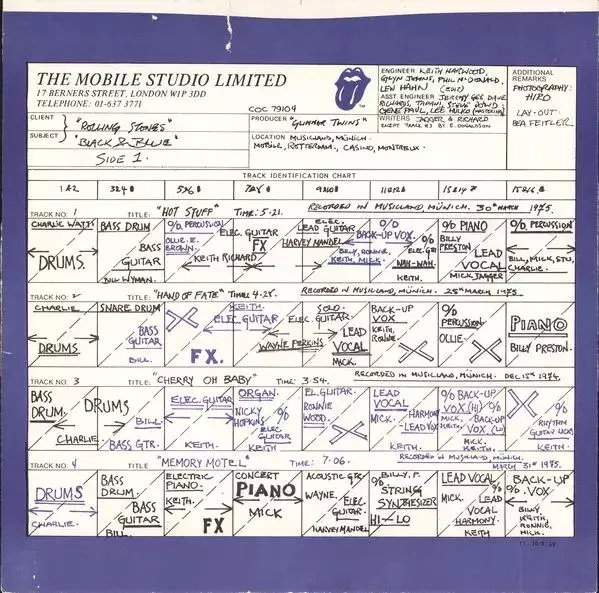 THE MOBILE STUDIO LIMITED
17 BERNERS STREET, LONDON W1P 3DD
TELEPHONE: 01-637 3771
COC 79104
CLIENT "ROLLING STONES"
SUBJECT "BLACK & BLUE"
SIDE 1.
PRODUCER "GLIMMER TWINS"
LOCATION MUSICLAND, MÜNICH.
MOBILE, ROTTERDAM, CASINO, MONTREUX.
ENGINEER KEITH HARWOOD,
GLYN JOHNS, PHIL McDONALD,
LEW HAHN
ASST. ENGINEER JEREMY GEE, DAVE
RICHARDS, STEVE DOWD
GENE PAUL, LEE HULKO (MASTERING)
WRITERS JAGGER & RICHARD
EXCEPT TRACK #3 BY E. DONALDSON
ADDITIONAL
REMARKS
PHOTOGRAPHY:
HIRO
LAY-OUT:
BEA FEITLER
TRACK IDENTIFICATION CHART
1 & 2
TRACK NO. 1 TITLE: "HOT STUFF" TIME: 5-21. RECORDED IN MUSICLAND, MÜNICH. 30th MARCH 1975.
CHARLIE WATTS
DRUMS.
BASS DRUM
BASS
GUITAR
BILL WYMAN.
% PERCUSSION
OLLIE. E.
BROWN.
ELEC. GUITAR
FX
KEITH RICHARD
ELEC.
LEAD GUITAR
HARVEY MANDEL
%
BACK-UP VOX.
BILLY, RONNIE,
KEITH, MICK.
%
ELEC. GTR
NAH-NAH.
KEITH.
% PIANO
BILLY
PRESTON
LEAD
VOCAL
MICK JAGGER
% PERCUSSION
BILL, MICK, STU,
CHARLIE.
TRACK NO. 2 TITLE: "HAND OF FATE" TIME: 4-28. RECORDED IN MUSICLAND, MÜNICH. 25th MARCH 1975
CHARLIE
DRUMS
SNARE DRUM
BASS
GUITAR
BILL.
KEITH.
ELEC. GUITAR
FX.
ELEC. GUITAR
WAYNE PERKINS
SOLO.
LEAD
VOCAL
MICK.
BACK-UP
VOX
KEITH,
RONNIE.
%
PERCUSSION.
OLLIE.
PIANO
BILLY PRESTON.
TRACK NO. 3 TITLE: "CHERRY OH BABY" TIME: 3-54. RECORDED IN MUSICLAND, MÜNICH. DEC 15th 1974.
BASS
DRUM.
DRUMS
CHARLIE
BILL.
BASS GTR.
ELEC. GUITAR
KEITH.
ORGAN.
NICKY
HOPKINS
%
ELEC
GUITAR
KEITH
EL. GUITAR
RONNIE
WOOD.
LEAD
VOCAL
MICK.
HARMONY
LEAD VOX
KEITH.
% BACK-UP
VOX (HI) %
MICK, BACK-UP
KEITH. VOX (LO)
MICK.
KEITH.
%
RHYTHM
KEITH.
TRACK NO. 4 TITLE: "MEMORY MOTEL" TIME: 7-06. RECORDED IN MUSICLAND MÜNICH. MARCH 31st 1975.
DRUMS
CHARLIE.
BASS
DRUM.
BASS
GUITAR
BILL.
ELECTRIC
PIANO.
KEITH.
FX
CONCERT
PIANO
MICK
ACOUSTIC GTR.
WAYNE.
ELEC.
GUITAR.
HARVEY MANDEL
BILLY. P.
%
STRING
SYNTHESIZER
HI-LO
LEAD VOCAL
MICK. %
LEAD
VOCAL
HARMONY.
KEITH
BACK-UP
% VOX
BILLY,
KEITH,
RONNIE,
MICK.